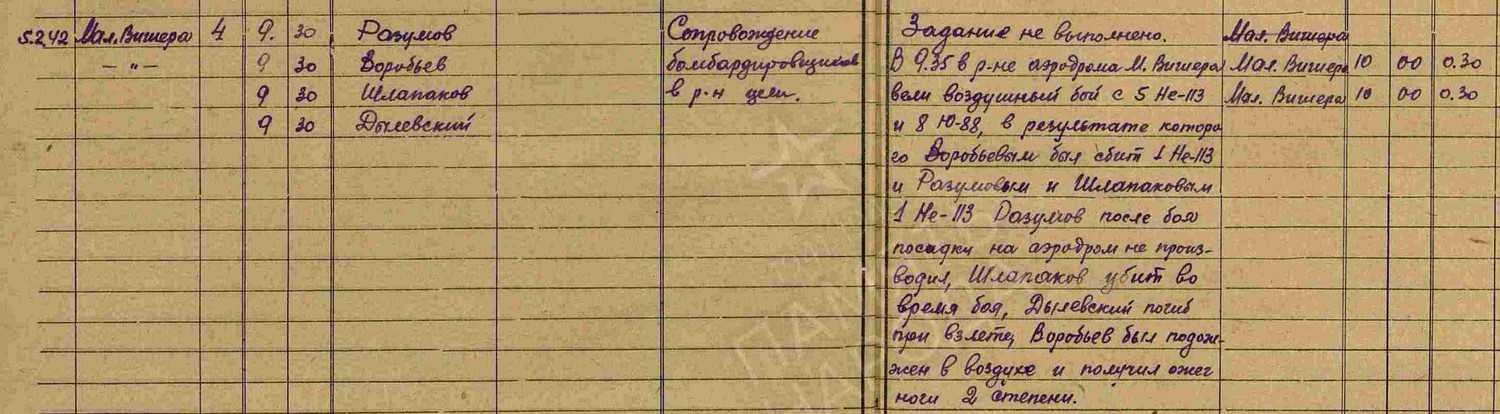 5.2.42 Мал. Вишера 4 9. 30 Разумов Сопровождение Задание не выполнено. Мал. Вишера
—"— 9 30 Воробьев бомбардировщиков В 9.35 в р-не аэродрома М. Вишера Мал. Вишера 10 00 0.30
9 30 Шлапаков в р-н цели. вели воздушный бой с 5 Не-113 Мал. Вишера 10 00 0.30
9 30 Дылевский и 8 Ю-88, в результате которо
го Воробьевым был сбит 1 Не-113
и Разумовым и Шлапаковым
1 Не-113 Разумов после боя
посадки на аэродром не произ-
водил, Шлапаков убит во
время боя, Дылевский погиб
при взлете, Воробьев был подож-
жен в воздухе и получил ожег
ноги 2 степени.